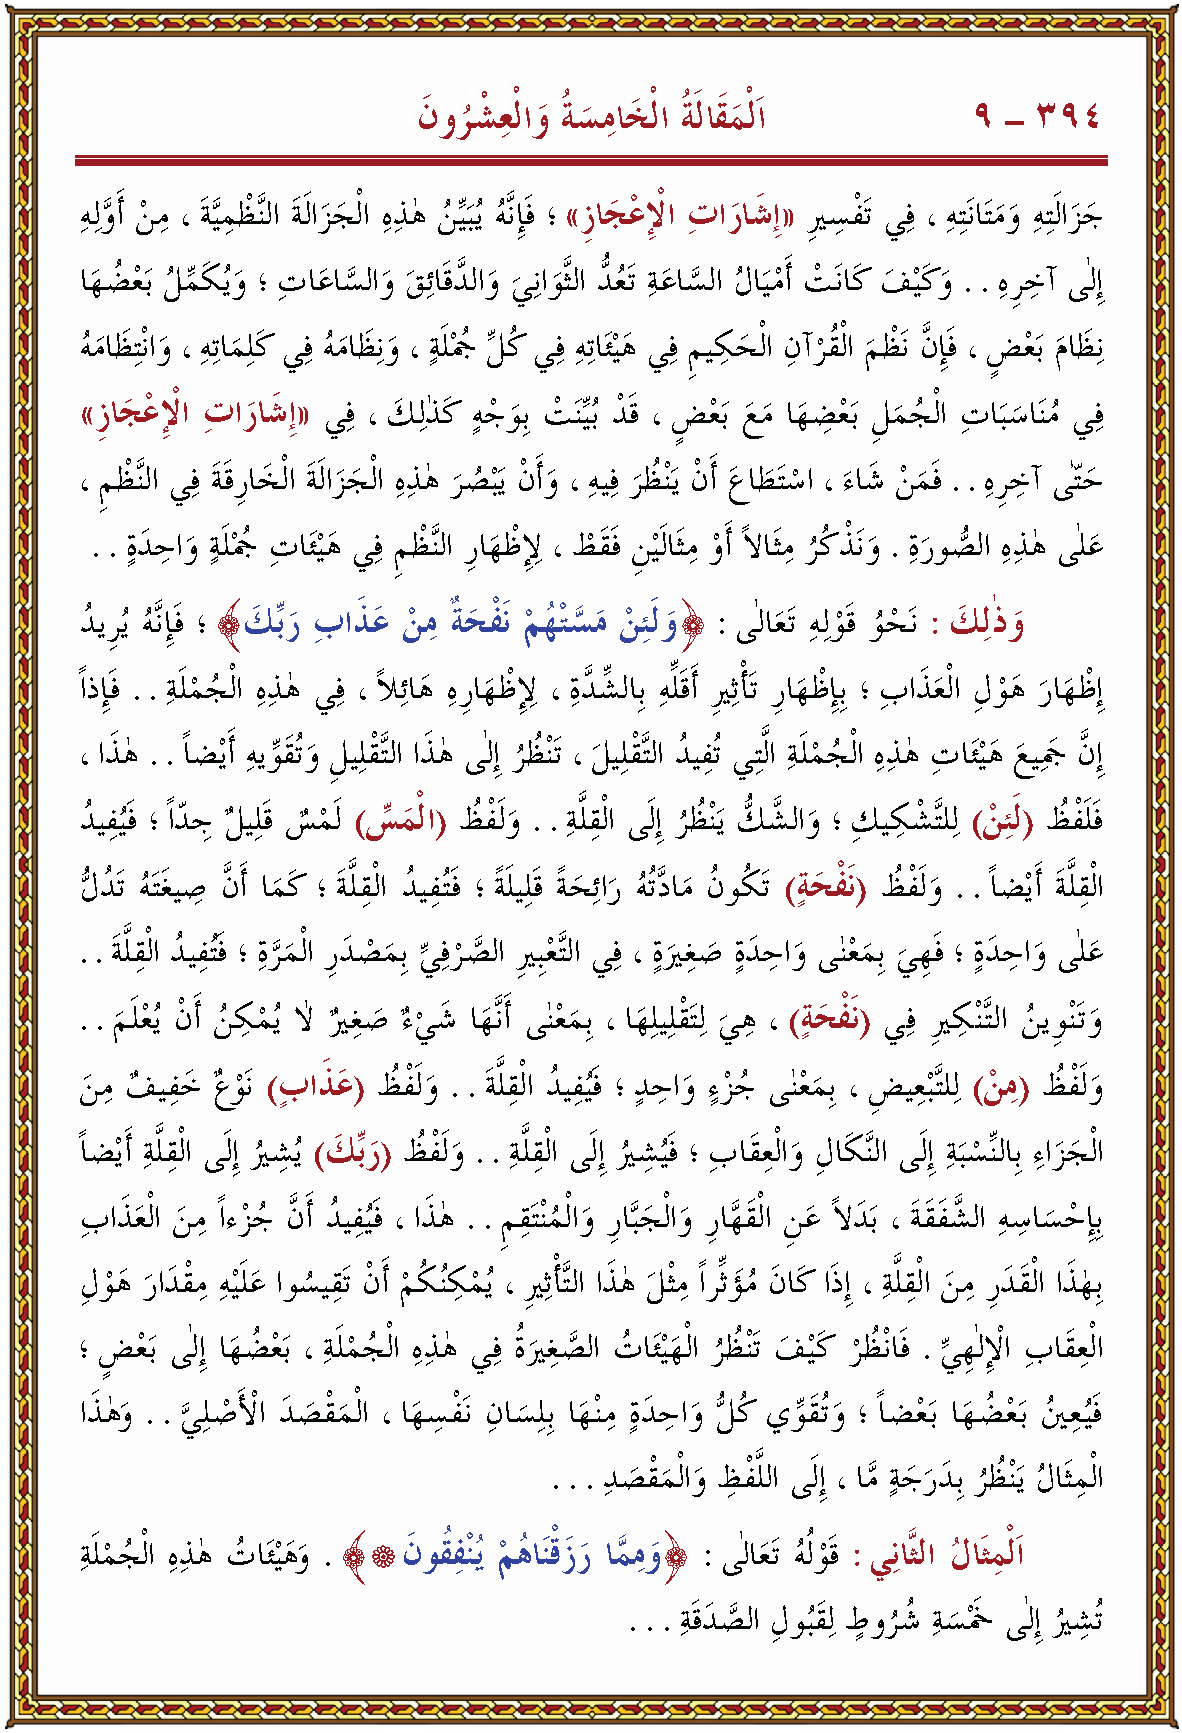 ٣٩٤ – ٩ اَلْمَقَالَةُ الْخَامِسَةُ وَالْعِشْرُونَ
جَزَالَتِهِ وَمَتَانَتِهِ ، فِي تَفْسِيرِ «إِشَارَاتِ الْإِعْجَازِ» ؛ فَإِنَّهُ يُبَيِّنُ هٰذِهِ الْجَزَالَةَ النَّظْمِيَّةَ ، مِنْ أَوَّلِهِ
إِلٰى آخِرِهِ . . وَكَيْفَ كَانَتْ أَمْيَالُ السَّاعَةِ تَعُدُّ الثَّوَانِيَ وَالدَّقَائِقَ وَالسَّاعَاتِ ؛ وَيُكَمِّلُ بَعْضُهَا
نِظَامَ بَعْضٍ ، فَإِنَّ نَظْمَ الْقُرْآنِ الْحَكِيمِ فِي هَيْئَاتِهِ فِي كُلِّ جُمْلَةٍ ، وَنِظَامَهُ فِي كَلِمَاتِهِ ، وَانْتِظَامَهُ
فِي مُنَاسَبَاتِ الْجُمَلِ بَعْضِهَا مَعَ بَعْضٍ ، قَدْ بُيِّنَتْ بِوَجْهٍ كَذٰلِكَ ، فِي «إِشَارَاتِ الْإِعْجَازِ»
حَتّٰى آخِرِهِ . . فَمَنْ شَاءَ ، اسْتَطَاعَ أَنْ يَنْظُرَ فِيهِ ، وَأَنْ يَبْصُرَ هٰذِهِ الْجَزَالَةَ الْخَارِقَةَ فِي النَّظْمِ ،
عَلٰى هٰذِهِ الصُّورَةِ . وَنَذْكُرُ مِثَالاً أَوْ مِثَالَيْنِ فَقَطْ ، لِإِظْهَارِ النَّظْمِ فِي هَيْئَاتِ جُمْلَةٍ وَاحِدَةٍ . .
وَذٰلِكَ : نَحْوُ قَوْلِهِ تَعَالٰى : ﴿وَلَئِنْ مَسَّتْهُمْ نَفْحَةٌ مِنْ عَذَابِ رَبِّكَ﴾ ؛ فَإِنَّهُ يُرِيدُ
إِظْهَارَ هَوْلِ الْعَذَابِ ؛ بِإِظْهَارِ تَأْثِيرِ أَقَلِّهِ بِالشِّدَّةِ ، لِإِظْهَارِهِ هَائِلاً ، فِي هٰذِهِ الْجُمْلَةِ . . فَإِذاً
إِنَّ جَمِيعَ هَيْئَاتِ هٰذِهِ الْجُمْلَةِ الَّتِي تُفِيدُ التَّقْلِيلَ ، تَنْظُرُ إِلٰى هٰذَا التَّقْلِيلِ وَتُقَوِّيهِ أَيْضاً . . هٰذَا ،
فَلَفْظُ (لَئِنْ) لِلتَّشْكِيكِ ؛ وَالشَّكُّ يَنْظُرُ إِلَى الْقِلَّةِ . . وَلَفْظُ (الْمَسِّ) لَمْسٌ قَلِيلٌ جِدّاً ؛ فَيُفِيدُ
الْقِلَّةَ أَيْضاً . . وَلَفْظُ (نَفْحَةٍ) تَكُونُ مَادَّتُهُ رَائِحَةً قَلِيلَةً ؛ فَتُفِيدُ الْقِلَّةَ ؛ كَمَا أَنَّ صِيغَتَهُ تَدُلُّ
عَلٰى وَاحِدَةٍ ؛ فَهِيَ بِمَعْنٰى وَاحِدَةٍ صَغِيرَةٍ ، فِي التَّعْبِيرِ الصَّرْفِيِّ بِمَصْدَرِ الْمَرَّةِ ؛ فَتُفِيدُ الْقِلَّةَ . .
وَتَنْوِينُ التَّنْكِيرِ فِي (نَفْحَةٍ) ، هِيَ لِتَقْلِيلِهَا ، بِمَعْنٰى أَنَّهَا شَيْءٌ صَغِيرٌ لاٰ يُمْكِنُ أَنْ يُعْلَمَ . .
وَلَفْظُ (مِنْ) لِلتَّبْعِيضِ ، بِمَعْنٰى جُزْءٍ وَاحِدٍ ؛ فَيُفِيدُ الْقِلَّةَ . . وَلَفْظُ (عَذَابٍ) نَوْعٌ خَفِيفٌ مِنَ
الْجَزَاءِ بِالنِّسْبَةِ إِلَى النَّكَالِ وَالْعِقَابِ ؛ فَيُشِيرُ إِلَى الْقِلَّةِ . . وَلَفْظُ (رَبِّكَ) يُشِيرُ إِلَى الْقِلَّةِ أَيْضاً
بِإِحْسَاسِهِ الشَّفَقَةَ ، بَدَلاً عَنِ الْقَهَّارِ وَالْجَبَّارِ وَالْمُنْتَقِمِ . . هٰذَا ، فَيُفِيدُ أَنَّ جُزْءاً مِنَ الْعَذَابِ
بِهٰذَا الْقَدَرِ مِنَ الْقِلَّةِ ، إِذَا كَانَ مُؤَثِّراً مِثْلَ هٰذَا التَّأْثِيرِ ، يُمْكِنُكُمْ أَنْ تَقِيسُوا عَلَيْهِ مِقْدَارَ هَوْلِ
الْعِقَابِ الْإِلٰهِيِّ . فَانْظُرْ كَيْفَ تَنْظُرُ الْهَيْئَاتُ الصَّغِيرَةُ فِي هٰذِهِ الْجُمْلَةِ ، بَعْضُهَا إِلٰى بَعْضٍ ؛
فَيُعِينُ بَعْضُهَا بَعْضاً ؛ وَتُقَوِّي كُلُّ وَاحِدَةٍ مِنْهَا بِلِسَانِ نَفْسِهَا ، الْمَقْصَدَ الْأَصْلِيَّ . . وَهٰذَا
الْمِثَالُ يَنْظُرُ بِدَرَجَةٍ مَّا ، إِلَى اللَّفْظِ وَالْمَقْصَدِ . . .
اَلْمِثَالُ الثَّانِي : قَوْلُهُ تَعَالٰى : ﴿وَمِمَّا رَزَقْنَاهُمْ يُنْفِقُونَ ❁﴾ . وَهَيْئَاتُ هٰذِهِ الْجُمْلَةِ
تُشِيرُ إِلٰى خَمْسَةِ شُرُوطٍ لِقَبُولِ الصَّدَقَةِ . . .